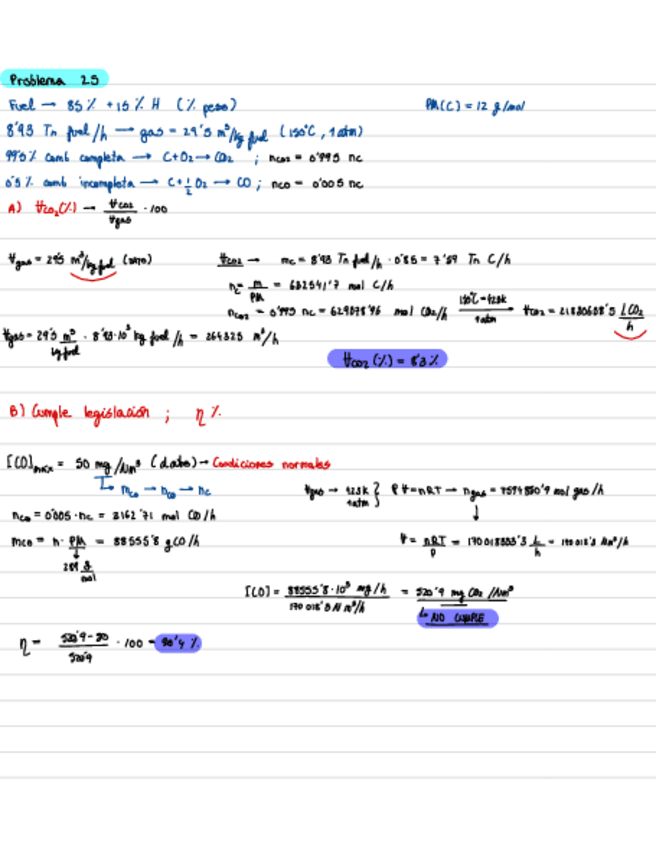 Problema 25
Fuel → 85% + 15% H (% peso)
PM(C) = 12 g/mol
8'93 Tn fuel/h → gas = 29'5 m³/kg fuel (150°C, 1 atm)
99'5% comb completa → C+O₂→CO₂ ; nco₂ = 0'995 nc
0'5% comb incompleta → C+½O₂→CO ; nco = 0'005 nc
A) Vco₂(%) → Vco₂/Vgas · 100
Vgas = 29'5 m³/kg fuel (DATO)
Vco₂ → mc = 8'93 Tn fuel/h · 0'85 = 7'59 Tn C/h
nc = m/PM = 632541'7 mol C/h
nco₂ = 0'995 nc = 629378'96 mol CO₂/h → 150°C = 423K 1 atm → Vco₂ = 21830608'5 L CO₂/h
Vgas = 29'5 m³/kg fuel · 8'93·10³ kg fuel/h = 264325 m³/h
Vco₂ (%) = 8'3%
B) Cumple legislación ; η %
[CO]máx = 50 mg/Nm³ (dato) → Condiciones normales
mco → nco → nc
Vgas → 423K 1 atm } PV=nRT → ngas = 7594830'9 mol gas/h
nco = 0'005·nc = 3162'71 mol CO/h
mco = n · PM = 88555'8 g CO/h
28 g/mol
V = nRT/P = 170018333'3 L/h = 170018'3 Nm³/h
[CO] = 88555'8·10³ mg/h / 170018'3 Nm³/h = 520'9 mg CO₂/Nm³
↳ NO CUMPLE
η = 520'9-50/520'9 · 100 = 90'4 %